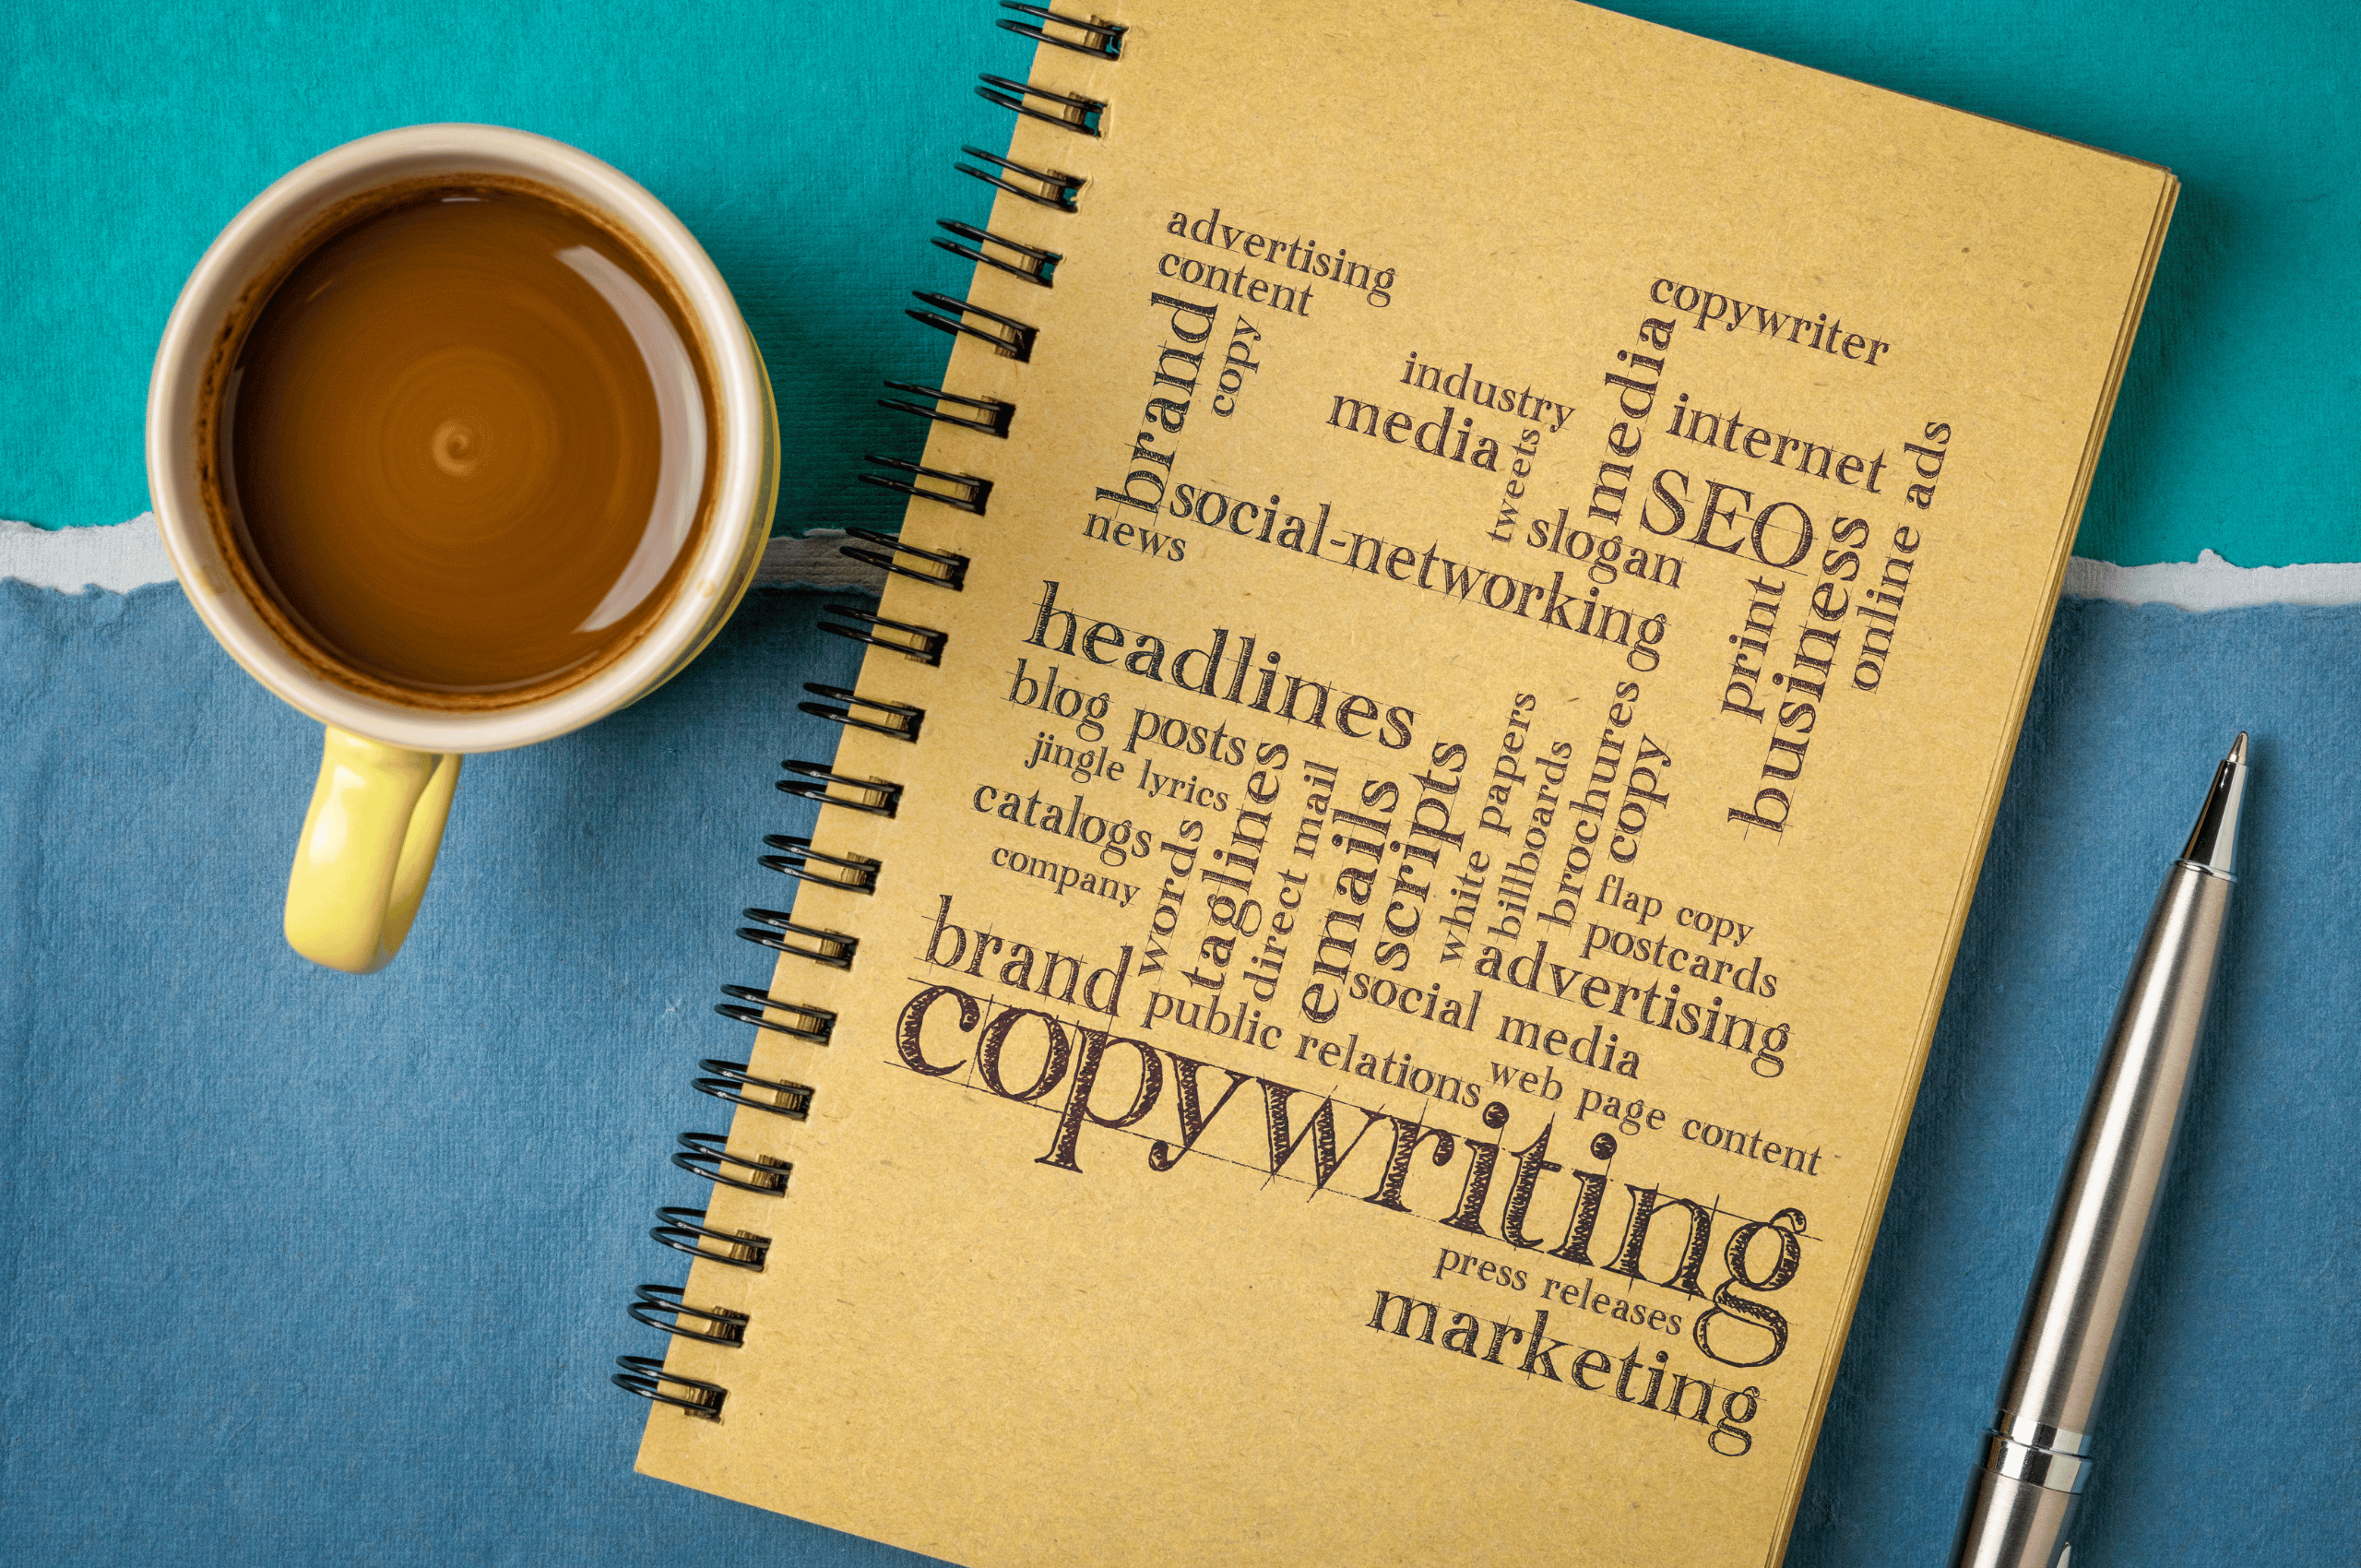 advertising
content
brand
copy
copywriter
industry
media
tweets
media
internet
SEO
slogan
social-networking
news
print
business
online ads
headlines
blog posts
jingle lyrics
catalogs
company
words
taglines
direct mail
emails
scripts
white papers
billboards
brochures
copy
flap copy
postcards
advertising
brand
public relations
social media
web page content
copywriting
press releases
marketing